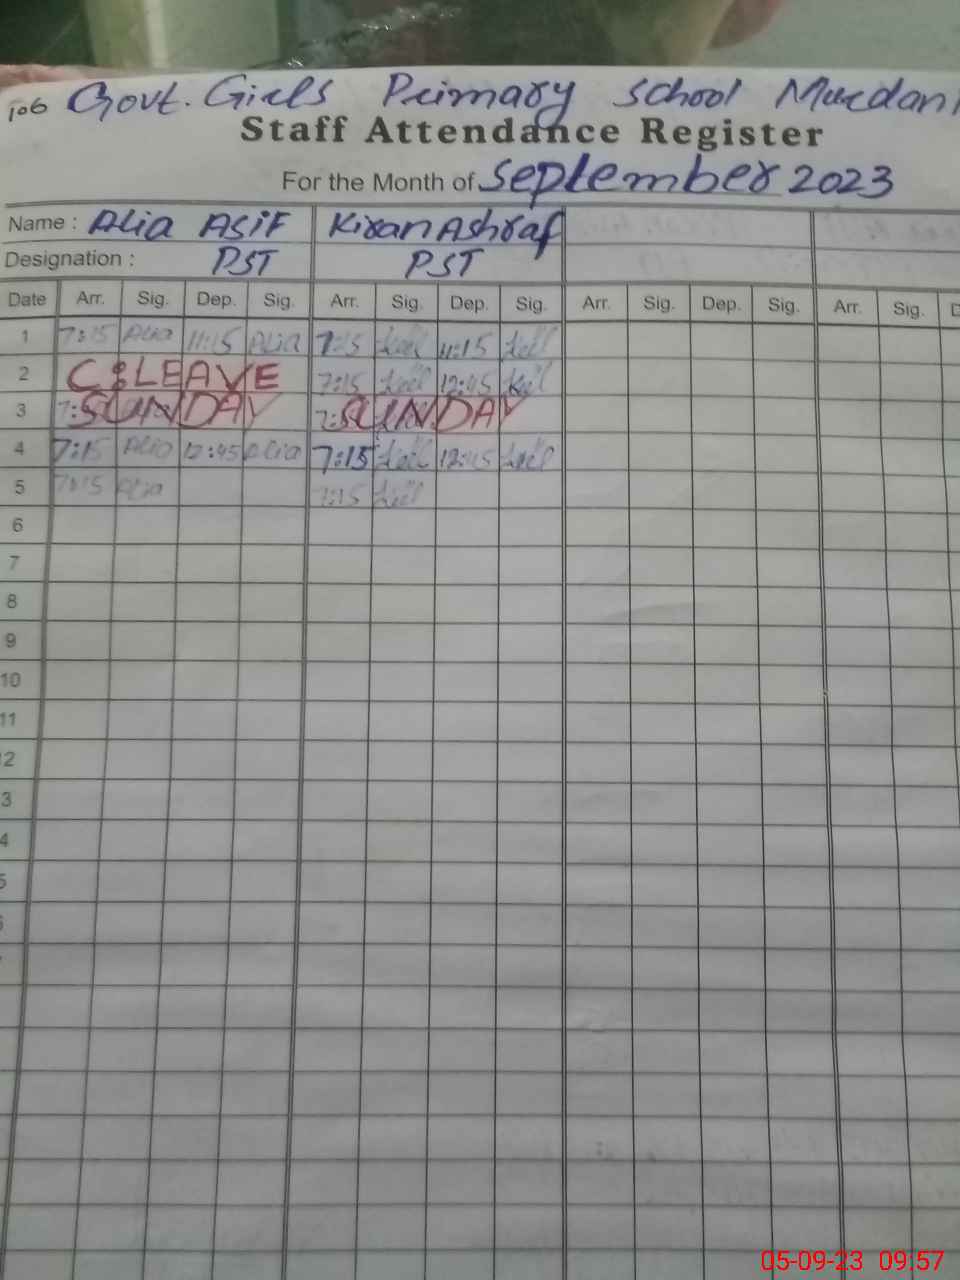 Govt. Girls Primary School
Staff Attendance Register
For the Month of September 2023
Name : Alia Asif Kiran Ashraf
Designation : PST PST
Date Arr. Sig. Dep. Sig. Arr. Sig. Dep. Sig. Arr. Sig. Dep. Sig. Arr. Sig.
1 7:15 Alia 11:15 Alia 7:15 11:15
2 C:LEAVE 7:15 12:45
3 SUNDAY SUNDAY
4 7:15 Alia 12:45 Alia 7:15 12:45
5 7:15 Alia 7:15
6
7
8
9
10
11
2
3
4
5
05-09-23 09:57